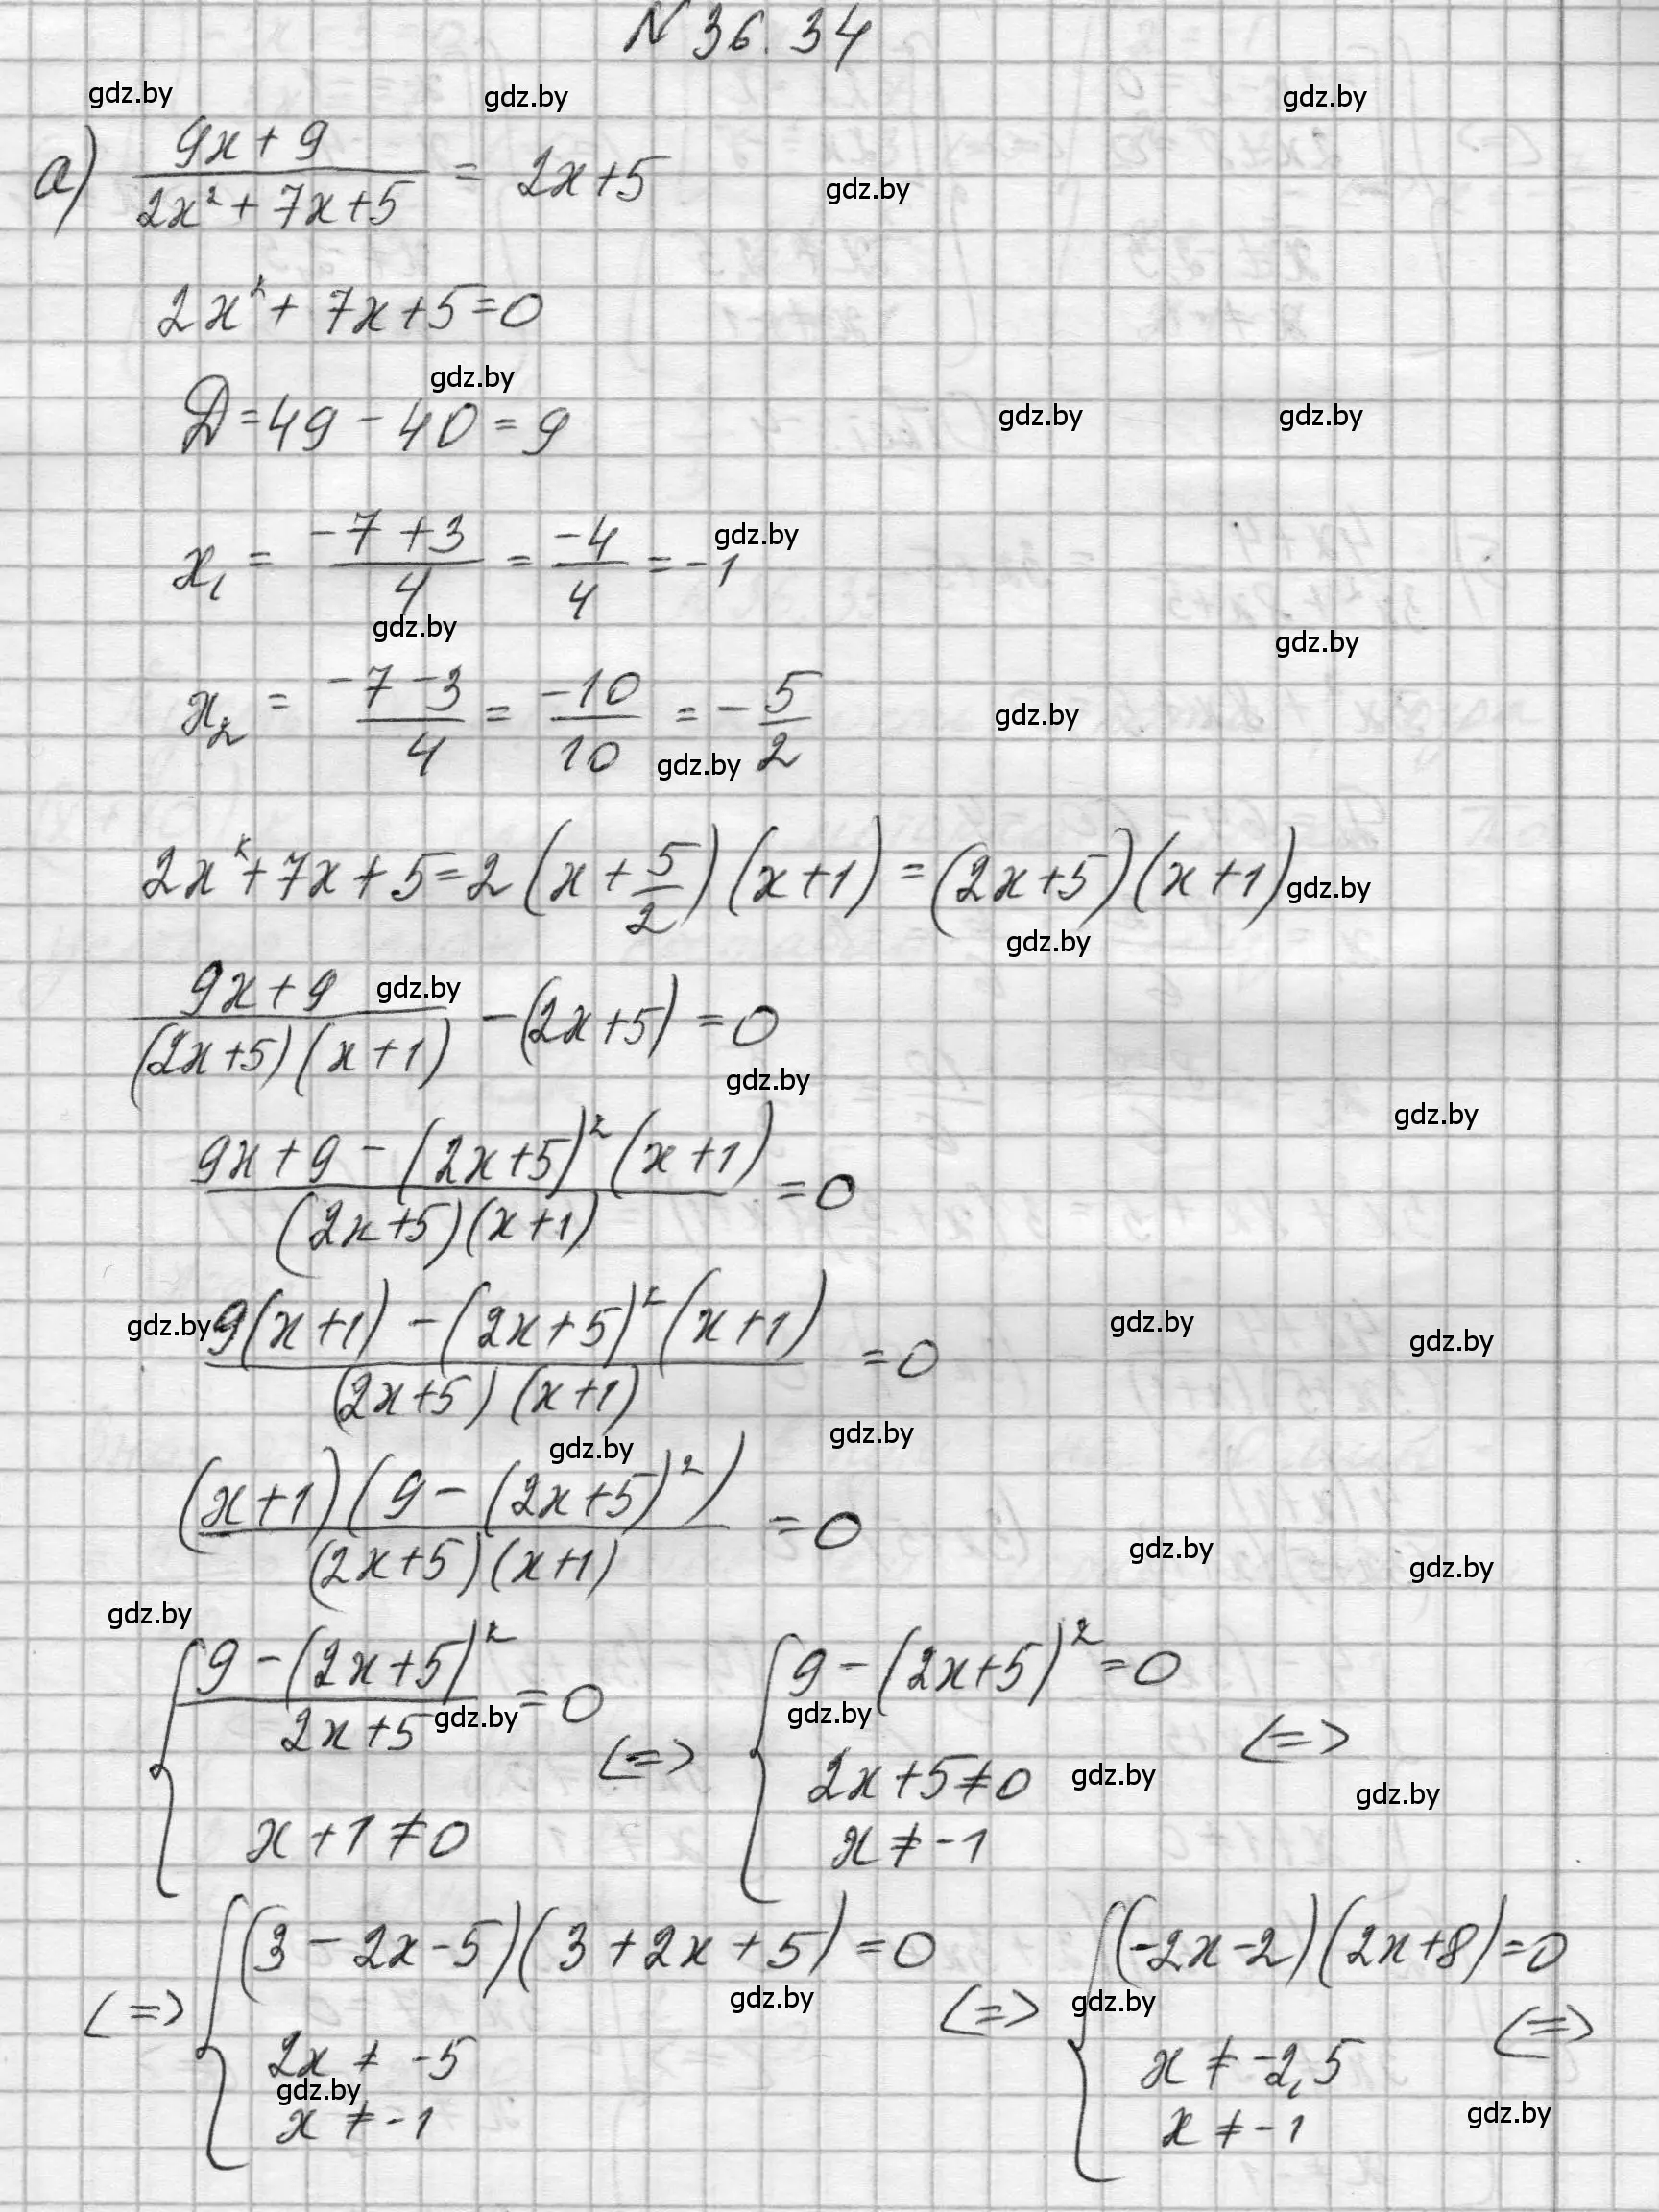 N 36.34
gdz.by gdz.by gdz.by
а) (9x + 9)/(2x² + 7x + 5) = 2x + 5 gdz.by
2x² + 7x + 5 = 0
gdz.by
D = 49 - 40 = 9 gdz.by gdz.by
x₁ = (-7 + 3)/4 = (-4)/4 = -1 gdz.by
gdz.by gdz.by
x₂ = (-7 - 3)/4 = (-10)/10 = -5/2 gdz.by
gdz.by
2x² + 7x + 5 = 2(x + 5/2)(x + 1) = (2x + 5)(x + 1) gdz.by
gdz.by
(9x + 9)/((2x + 5)(x + 1)) - (2x + 5) = 0 gdz.by
gdz.by
gdz.by
(9x + 9 - (2x + 5)²(x + 1))/((2x + 5)(x + 1)) = 0
gdz.by (9(x + 1) - (2x + 5)²(x + 1))/((2x + 5)(x + 1)) = 0 gdz.by gdz.by
gdz.by gdz.by
((x + 1)(9 - (2x + 5)²))/((2x + 5)(x + 1)) = 0
gdz.by gdz.by
gdz.by
{ (9 - (2x + 5)²)/(2x + 5) = 0 gdz.by <=> { 9 - (2x + 5)² = 0 gdz.by <=>
2x + 5 ≠ 0 gdz.by gdz.by
x + 1 ≠ 0 x ≠ -1
<=> { (3 - 2x - 5)(3 + 2x + 5) = 0 <=> { (-2x - 2)(2x + 8) = 0 <=>
gdz.by gdz.by
2x ≠ -5 x ≠ -2,5
gdz.by gdz.by
x ≠ -1 x ≠ -1